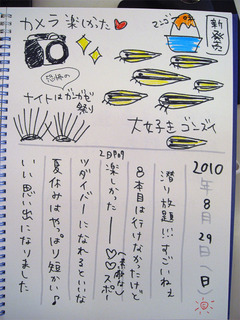 カメラ 楽しかた♥
マンゴ
新発売
恐怖の
ナイトはガンガゼ
祭り
大好きゴンズイ
2010年8月29日(日)
潜り放題!!すごいねぇ
8本目は行けなかったけど
(素敵な)
楽しかったー♡♡スポー
ツダイバーになれるといいな
夏休みはやっぱり短かい♪
いい思い出になりました